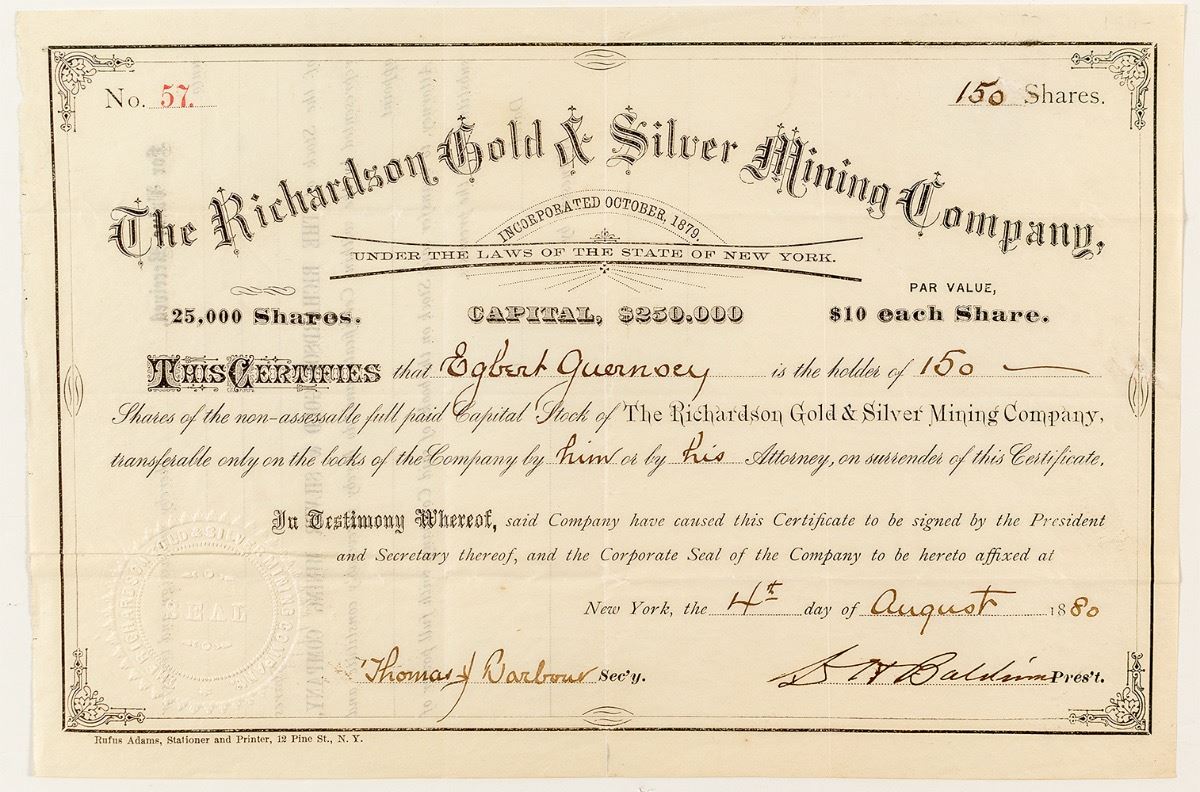 No. 57.
150 Shares.
The Richardson Gold & Silver Mining Company,
INCORPORATED OCTOBER, 1879.
UNDER THE LAWS OF THE STATE OF NEW YORK.
25,000 Shares.
CAPITAL, $250,000
PAR VALUE,
$10 each Share.
THIS CERTIFIES that Egbert Guernsey is the holder of 150
Shares of the non-assessable full paid Capital Stock of The Richardson Gold & Silver Mining Company,
transferable only on the books of the Company by him or by his Attorney, on surrender of this Certificate.
In Testimony Whereof, said Company have caused this Certificate to be signed by the President
and Secretary thereof, and the Corporate Seal of the Company to be hereto affixed at
New York, the 4th day of August 1880
Thomas J Barbour Sec'y.
D H Baldwin Pres't.
SEAL
Rufus Adams, Stationer and Printer, 12 Pine St., N. Y.